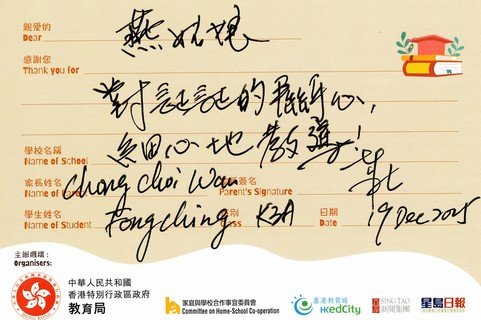 親愛的
Dear 燕姑娘
感謝您
Thank you for
對証証的
心,
細心地教導!
學校名稱
Name of School
家長姓名
Name of Parent Chong Choi Wan
家長簽名
Parent's Signature
學生姓名
Name of Student Fong ching
班別
Class K3A
日期
Date 19 Dec 2025
主辦機構:
Organisers:
中華人民共和國
香港特別行政區政府
教育局
家庭與學校合作事宜委員會
Committee on Home-School Co-operation
香港教育城
HKedCity
星島 SING TAO
新聞集團
星島日報